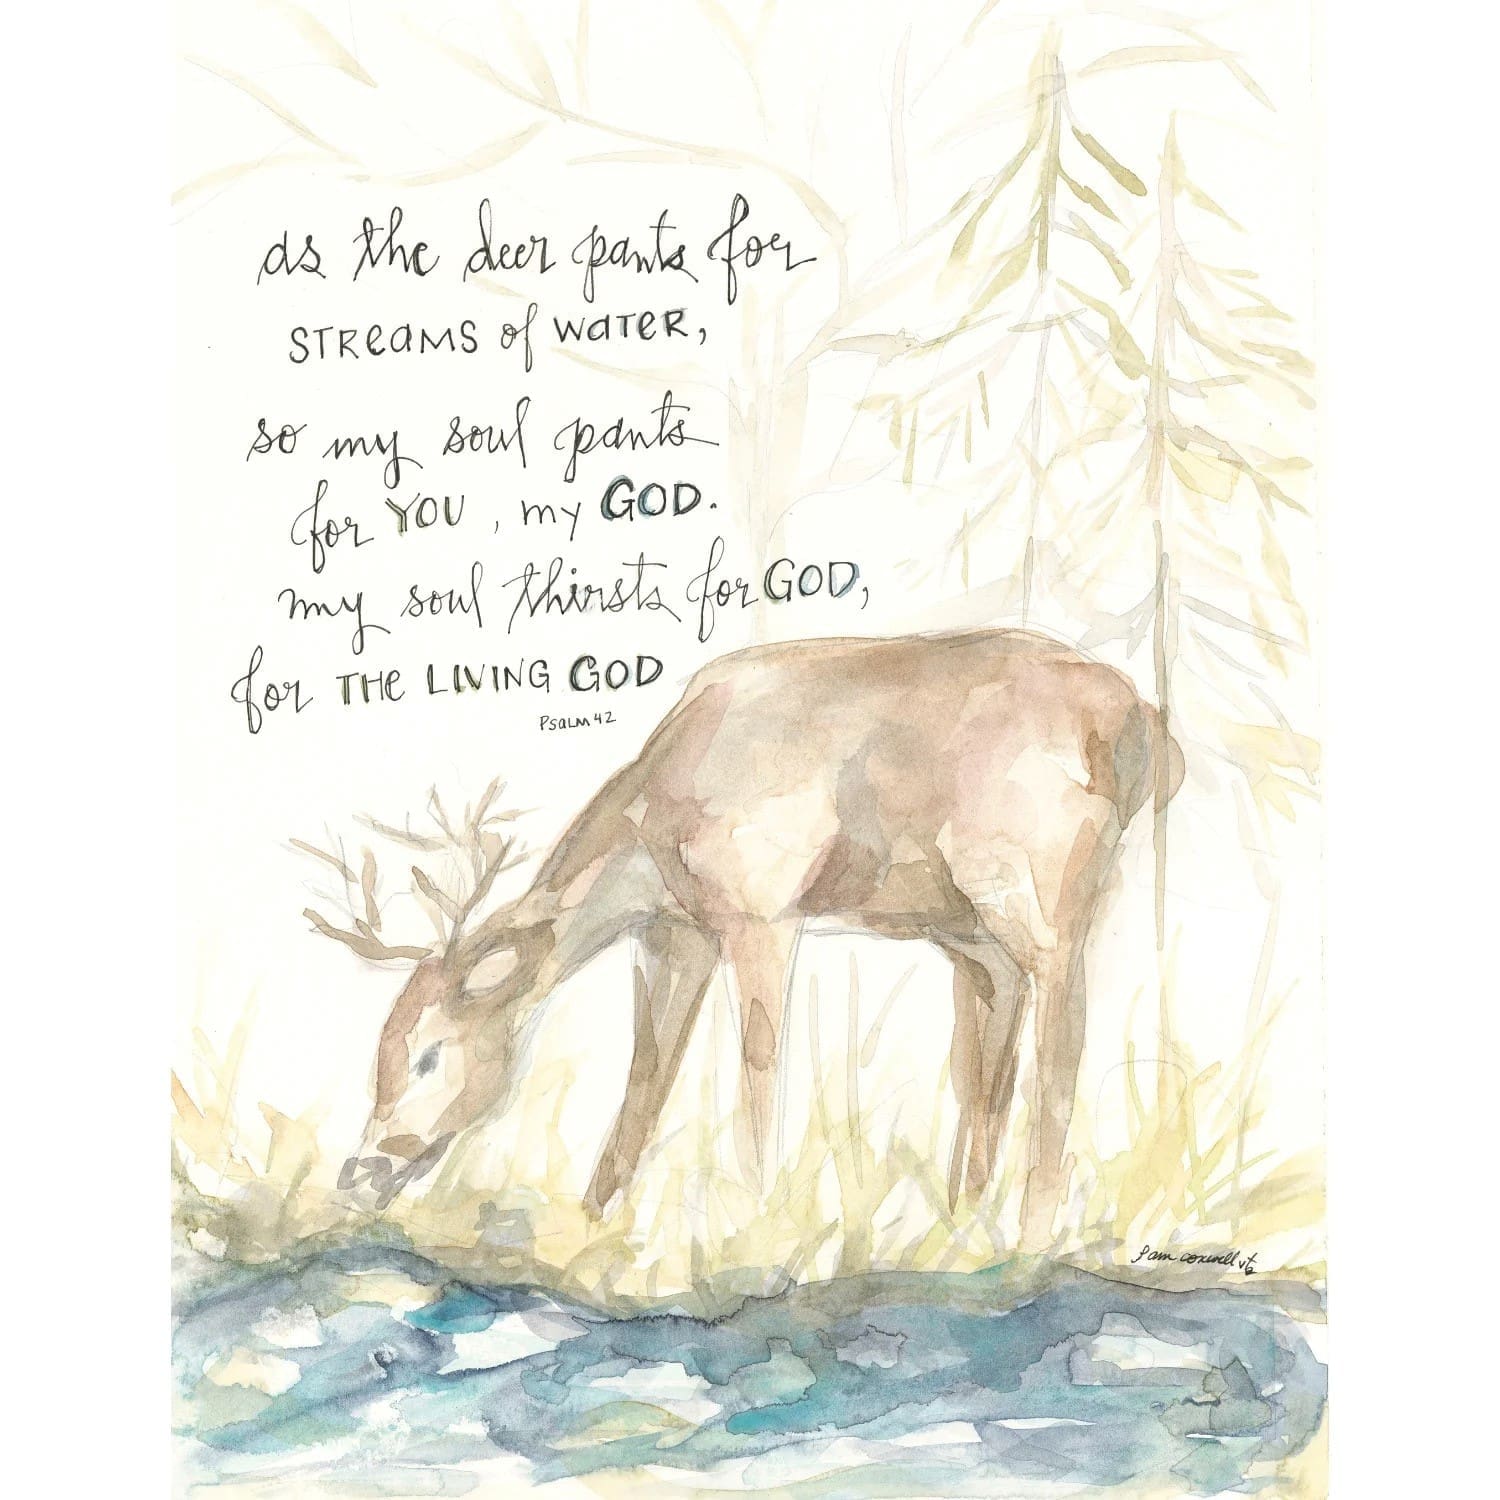 as the deer pants for
STReaMS of WaTeR,
so my soul pants
for YOU, my GOD.
my soul thirsts for GOD,
for THe LIVING GOD
PsaLM 42